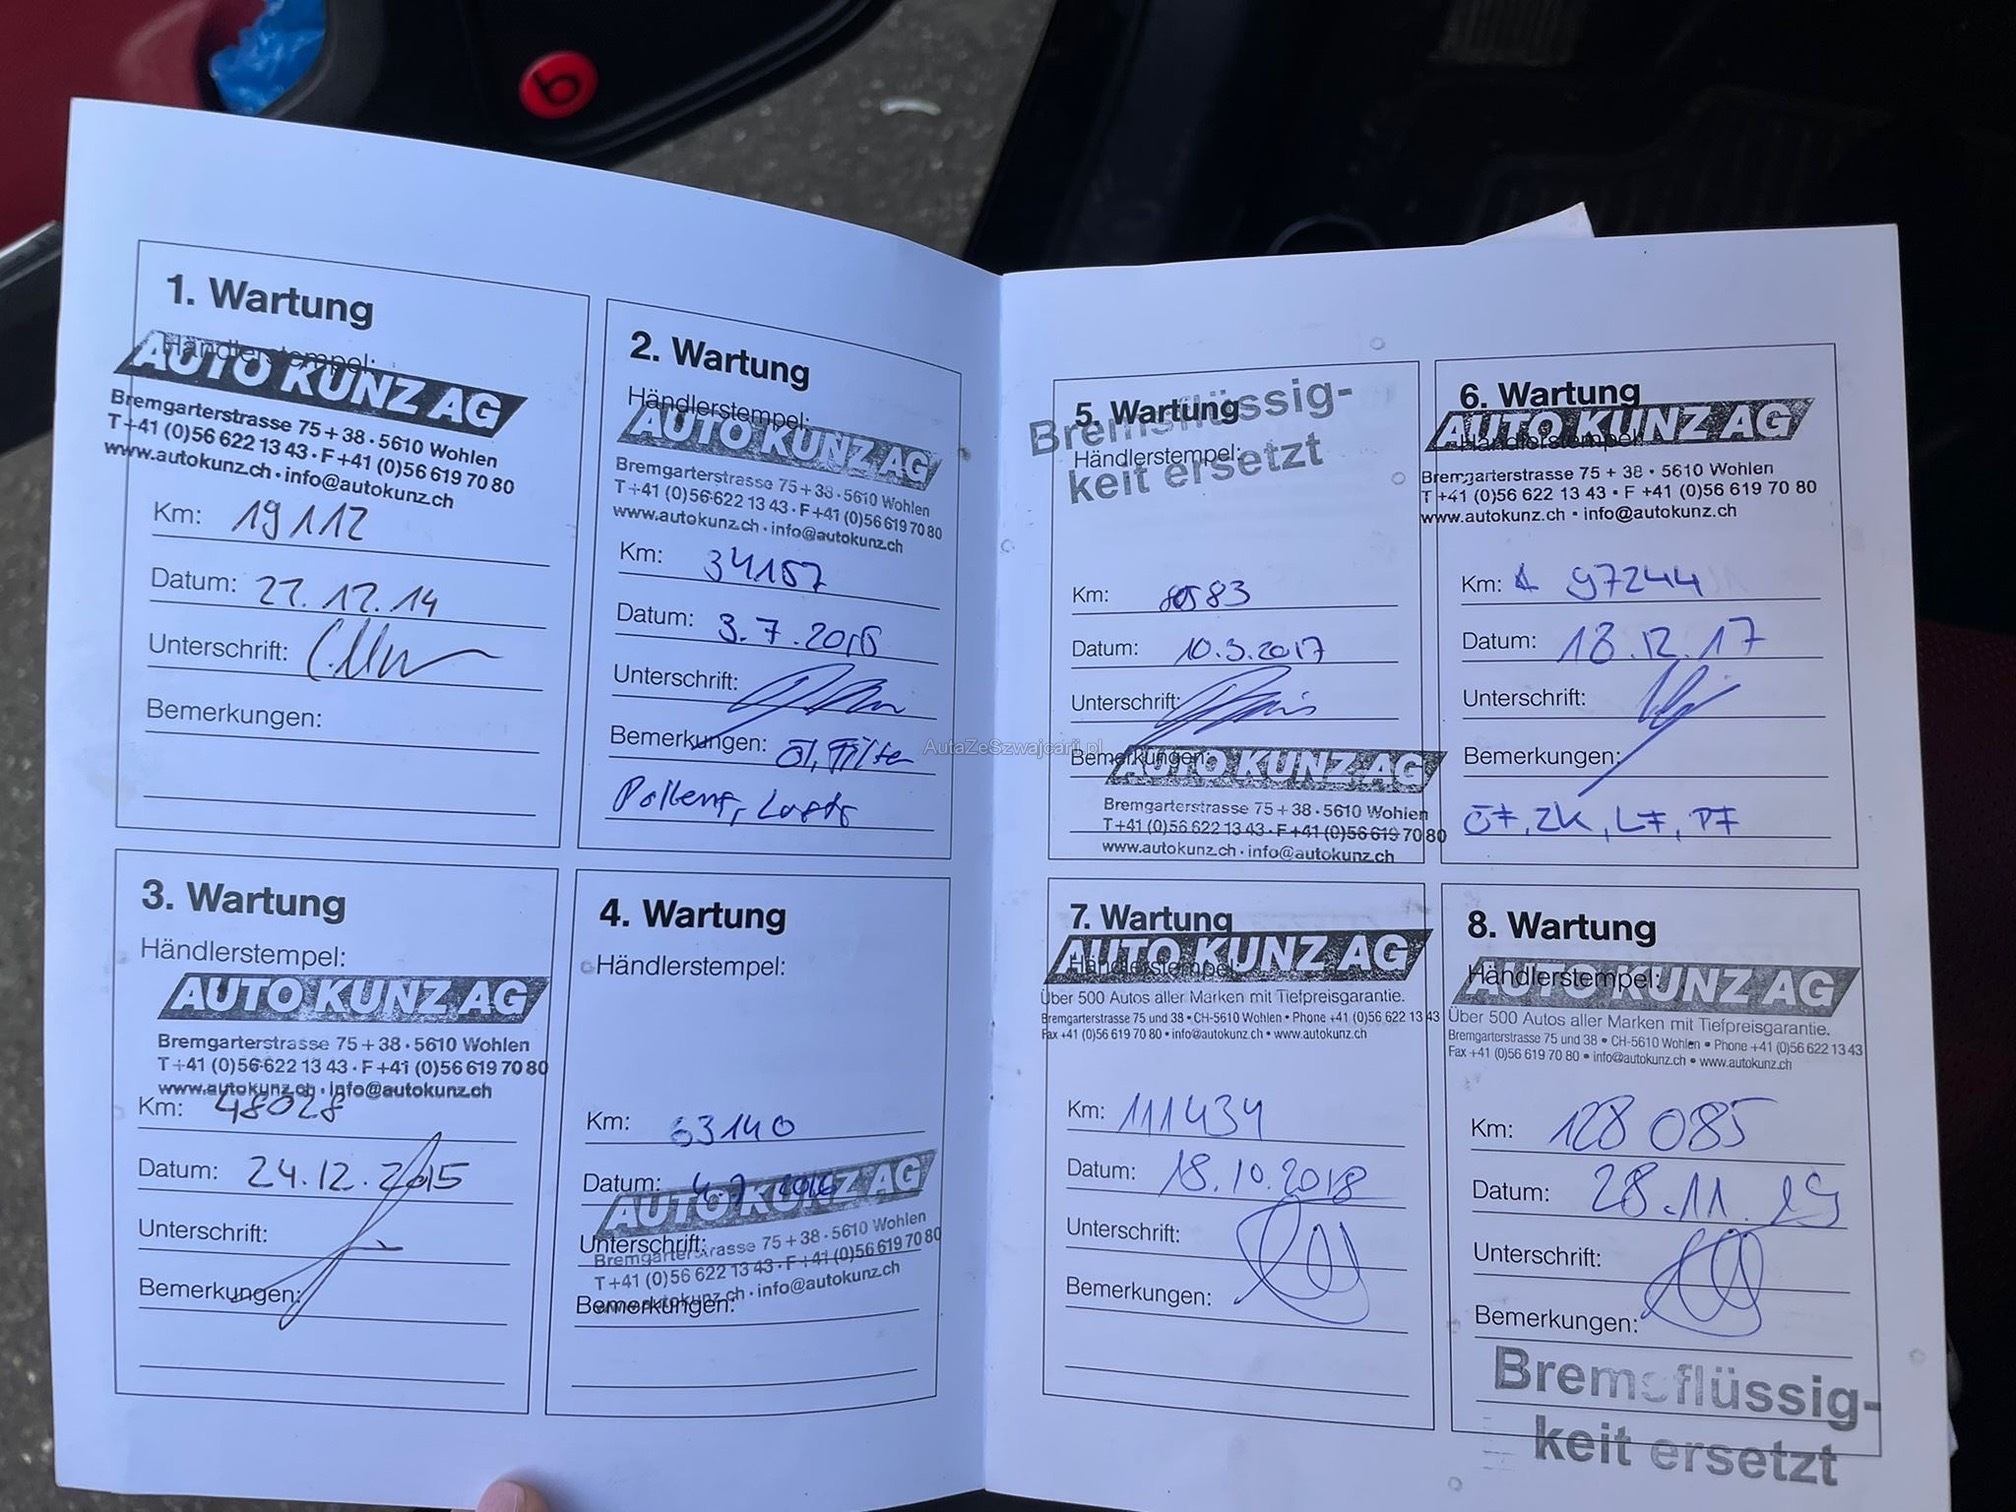 1. Wartung
Händlerstempel:
AUTO KUNZ AG
Bremgarterstrasse 75 + 38 · 5610 Wohlen
T +41 (0)56 622 13 43 · F +41 (0)56 619 70 80
www.autokunz.ch · info@autokunz.ch
Km: 19112
Datum: 22.12.14
Unterschrift:
Bemerkungen:
2. Wartung
Händlerstempel:
AUTO KUNZ AG
Bremgarterstrasse 75 + 38 · 5610 Wohlen
T +41 (0)56 622 13 43 · F +41 (0)56 619 70 80
www.autokunz.ch · info@autokunz.ch
Km: 34157
Datum: 3.7.2015
Unterschrift:
Bemerkungen: Öl, Filter
3. Wartung
Händlerstempel:
AUTO KUNZ AG
Bremgarterstrasse 75 + 38 · 5610 Wohlen
T +41 (0)56 622 13 43 · F +41 (0)56 619 70 80
www.autokunz.ch · info@autokunz.ch
Km: 48028
Datum: 24.12.2015
Unterschrift:
Bemerkungen:
4. Wartung
Händlerstempel:
Km: 63140
Datum: 4.7.2016
AUTO KUNZ AG
Unterschrift:
Bremgarterstrasse 75 + 38 · 5610 Wohlen
T +41 (0)56 622 13 43 · F +41 (0)56 619 70 80
www.autokunz.ch · info@autokunz.ch
Bemerkungen:
5. Wartung
Bremsflüssig-
Händlerstempel:
keit ersetzt
Km:
Datum: 10.3.2017
Unterschrift:
Bemerkungen:
AUTO KUNZ AG
Bremgarterstrasse 75 + 38 · 5610 Wohlen
T +41 (0)56 622 13 43 · F +41 (0)56 619 70 80
www.autokunz.ch · info@autokunz.ch
6. Wartung
AUTO KUNZ AG
Händlerstempel:
Bremgarterstrasse 75 + 38 • 5610 Wohlen
T +41 (0)56 622 13 43 • F +41 (0)56 619 70 80
www.autokunz.ch • info@autokunz.ch
Km: 97244
Datum: 18.12.17
Unterschrift:
Bemerkungen:
ÖF, ZK, LF, PF
7. Wartung
AUTO KUNZ AG
Händlerstempel:
Über 500 Autos aller Marken mit Tiefpreisgarantie.
Bremgarterstrasse 75 und 38 • CH-5610 Wohlen • Phone +41 (0)56 622 13 43
Fax +41 (0)56 619 70 80 • info@autokunz.ch • www.autokunz.ch
Km: 111434
Datum: 18.10.2018
Unterschrift:
Bemerkungen:
8. Wartung
Händlerstempel:
AUTO KUNZ AG
Über 500 Autos aller Marken mit Tiefpreisgarantie.
Bremgarterstrasse 75 und 38 • CH-5610 Wohlen • Phone +41 (0)56 622 13 43
Fax +41 (0)56 619 70 80 • info@autokunz.ch • www.autokunz.ch
Km: 128085
Datum: 28.11.19
Unterschrift:
Bemerkungen:
Bremsflüssig-
keit ersetzt
AutaZeSzwajcarii.pl